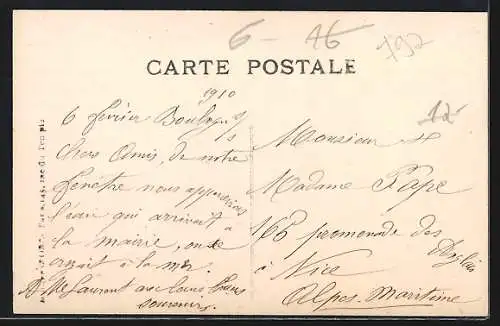 6 - 16
792
CARTE POSTALE
12
1910
6 février Boulogne s/s
Chers Amis, de notre
fenêtre nous apercevions
l'eau qui arrivait à
la mairie, on se
croyait à la mer.
Mr Me Laurent avec leurs bons
souvenirs.
Monsieur &
Madame Pape
166 promenade des Anglais
à Nice
Alpes-Maritime